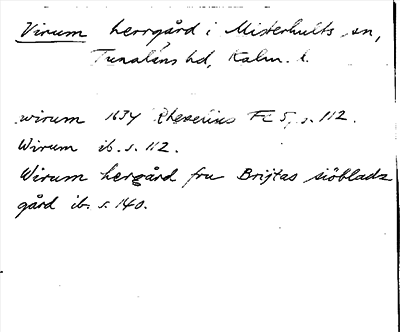 Virum herrgård i Misterhults sn,
Tunaläns hd, Kalm. l.
wirum 1634 Rhezelius FE 5, s. 112.
Wirum ib. s. 112.
Wirum hergård fru Brijtas siöbladz
gård ib. s. 140.